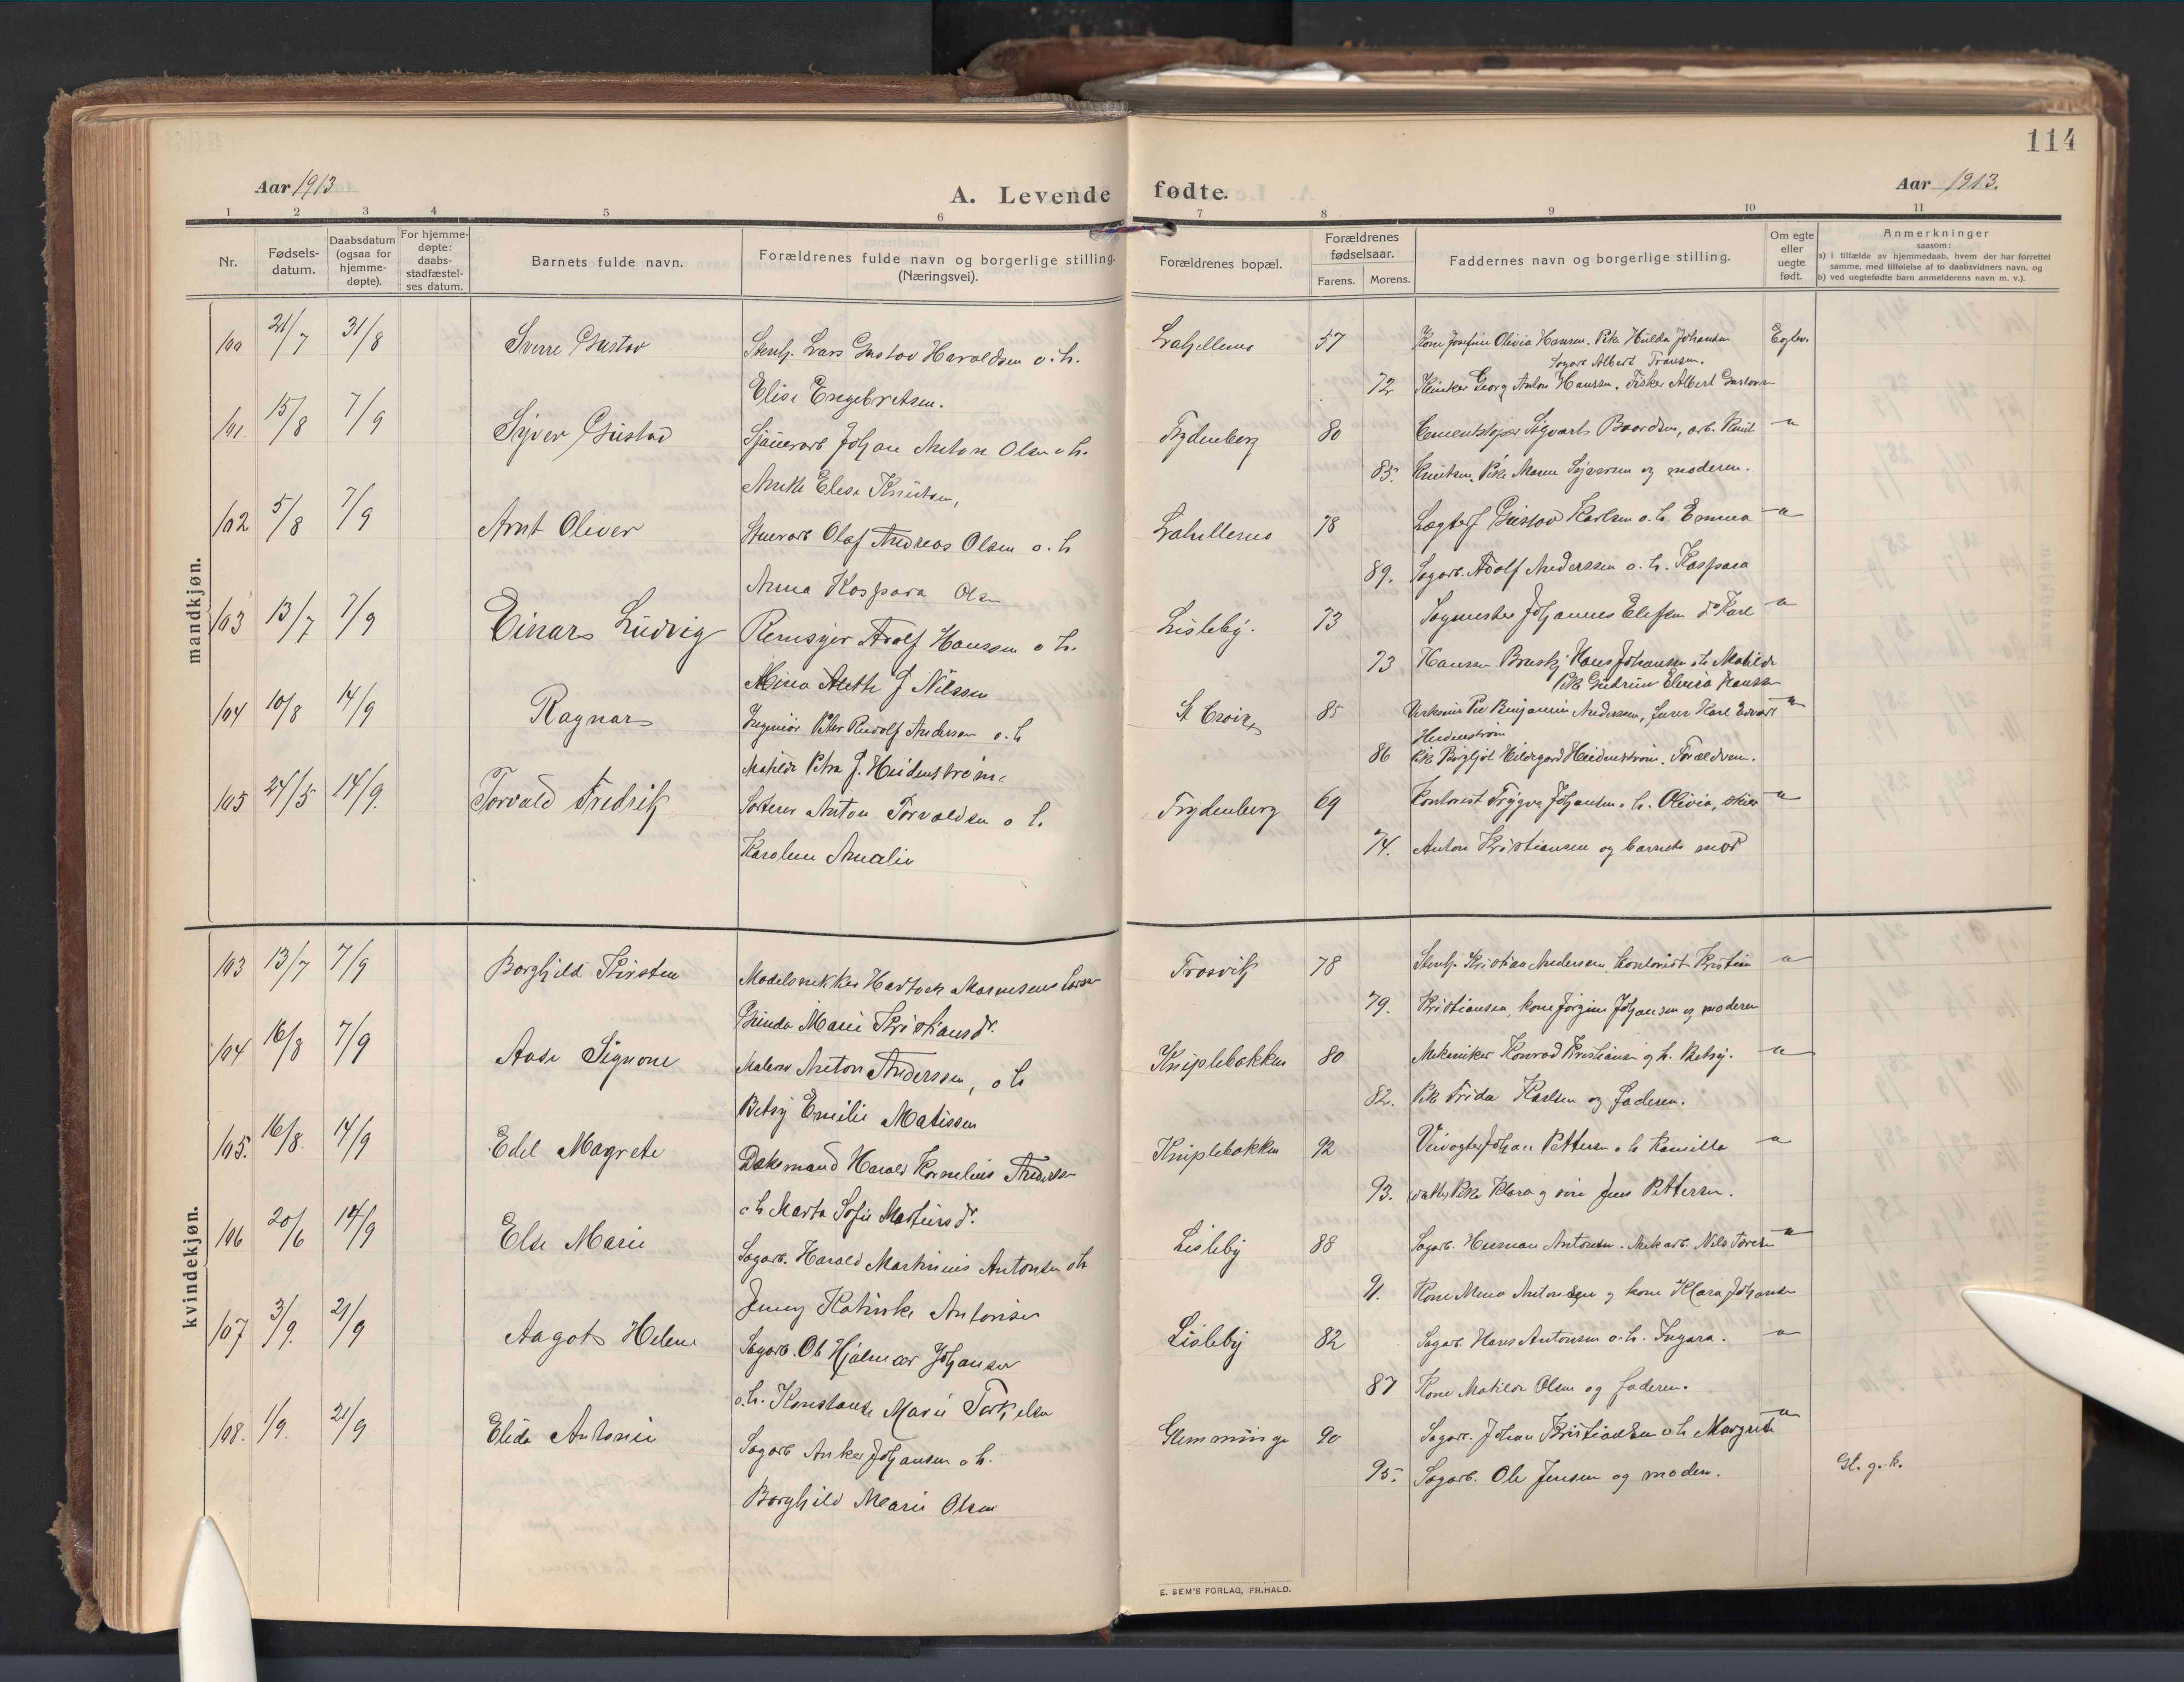 114
Aar 1913
A. Levende fødte.
Aar 1913.
1 2 3 4 5 6 7 8 9 10 11
Nr.
Fødsels-
datum.
Daabsdatum
(ogsaa for
hjemme-
døpte).
For hjemme-
døpte:
daabs-
stadfæstel-
ses datum.
Barnets fulde navn.
Forældrenes fulde navn og borgerlige stilling.
(Næringsvei).
Forældrenes bopæl.
Forældrenes
fødselsaar.
Farens. Morens.
Faddernes navn og borgerlige stilling.
Om egte
eller
uegte
født.
Anmerkninger
saasom:
a) i tilfælde av hjemmedaab, hvem der har forrettet
samme, med tilføielse af to daabsvidners navn, og
b) ved uegtefødte barn anmelderens navn m. v.).
mandkjøn.
21/7 31/8 Sverre Gustav Lars Gustav Haraldsen o. h. 57 Kone Josefine Olivia Hansen. Pike Hulda Johansen
Albert Fransen.
Elise Engebretsen. 72 Georg Anton Hansen. Fisker Albert
101. 15/8 7/9 Syver Gustav Johan Anton Olsen o h. Frydenberg 80 Sigvart Baardsen, arb. Knut
Elise Knutsen, 85. Knutsen. Pike og moderen.
102 5/8 7/9 Arnt Oliver Olaf Andreas Olsen o. h 78 Gustav Karlsen o. h. Emma
Anna Kaspara Olsen 89. Sagarb. Adolf Anderssen o. h. Kaspara
103 13/7 7/9 Einar Ludvig Adolf Hanssen o h. Lisleby. 73 Sagmester Johannes Elefsen do Karl
Nilssen 73 Hanssen. Hans Johansen o h Matilde
Pike Gudrun Hanssen
104 10/8 14/9 Ragnar Ingeniør Peter Rudolf Andersen o. h St Croix 85 Per Benjamin Anderssen, Karl Edvart
Heidenstrøm
Matilde Petra J. Heidenstrøm. 86 Pike Borghjot Hildegard Heidenstrøm. Forældrene.
105 24/5 14/9. Torvald Fredrik Sorterer Anton Torvaldsen o h. Frydenberg 69 Kontorist Trygve Johansen o h. Olivia,
Amalie 74. Anton Kristiansen og barnets mor
kvindekjøn.
103 13/7 7/9 Borghild Kirsten Modelsnekker Trosvik 78 Kristian Andersen. Kontorist Kristian
Marie Kristiansdr. 79. Kristiansen, kone Jørgine Johansen og moderen
104 16/8 7/9 Aase Signone Maler Anton Anderssen, o h Kniplebakken 80 Mekaniker Konrad Kristiansen og h. Betsy.
Betsy Emilie Matissen 82. Pike Frida Karlsen og faderen.
105. 16/8. 14/9 Edel Magrete Harald Kornelius Anderssen Kniplebakken 92 Johan Pettersen o h Kamilla
o h Marta Sofie 93. Pike Klara og Jens Pettersen.
106 20/6 14/9 Else Marie Sagarb. Harald Martinius Antonsen o h Lisleby 88 Sagarb. Herman Antonsen. Mek arb. Nils
Jenny Katinka Antonsen 91. Kone Mina Antonsen og kone Klara Johansen
107 3/9. 21/9 Aagot Helene Sagarb. Ole Hjalmar Johansen Lisleby 82 Sagarb. Hans Antonsen o. h. Ingara.
o. h. Konstanse Marie 87 Kone Matilde Olsen og faderen.
108. 1/9. 21/9 Elida Antonie Sagarb Anker Johansen o h. Glemminge 90 Sagarb. Johan Kristiansen o h Margrete
Borghild Marie Olsen 95. Sagarb. Ole Jensen og moderen. Gl. g. k.
E. SEM'S FORLAG, FR.HALD.